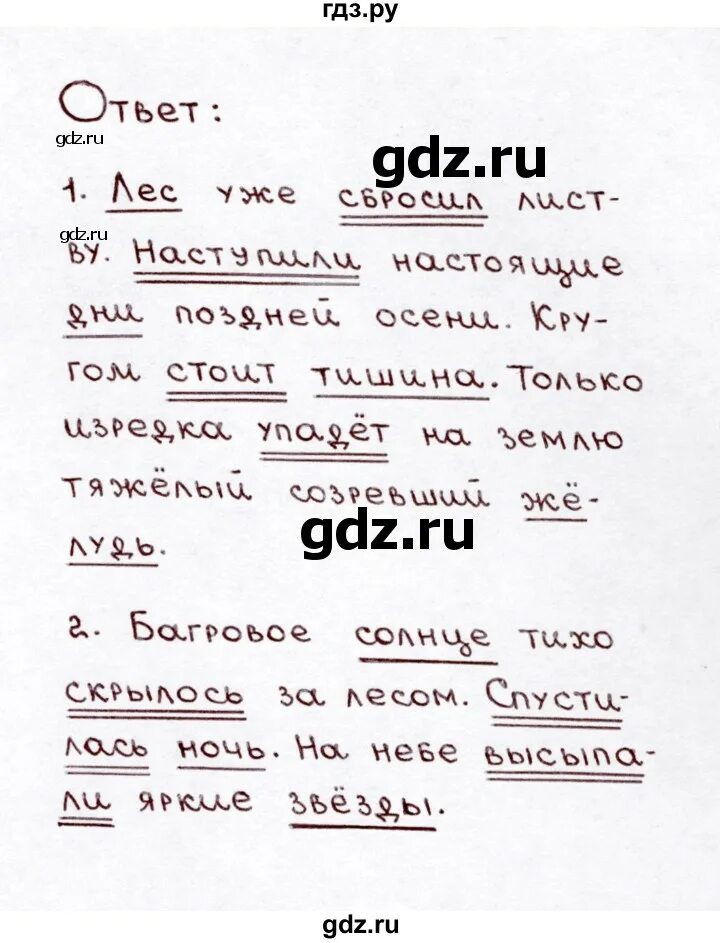 гдз.ру
Ответ:
gdz.ru
gdz.ru
1. Лес уже сбросил лист-
gdz.ru
ву. Наступили настоящие
дни поздней осени. Кру-
гом стоит тишина. Только
изредка упадёт на землю
тяжёлый созревший жё-
gdz.ru
лудь.
2. Багровое солнце тихо
скрылось за лесом. Спусти-
лась ночь. На небе высыпа-
ли яркие звёзды.
gdz.ru